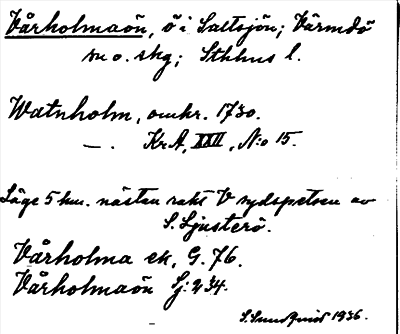 Vårholmaön, ö i Saltsjön; Värmdö
sn o. skg; Sthlms l.
Watnholm, omkr. 1730.
—. KrA, XXII, N:o 15.
Läge 5 km. nästan rakt V sydspetsen av
S. Ljusterö.
Vårholma ek, G. 76.
Vårholmaön Sj: 234.
S. Sundqvist 1936.